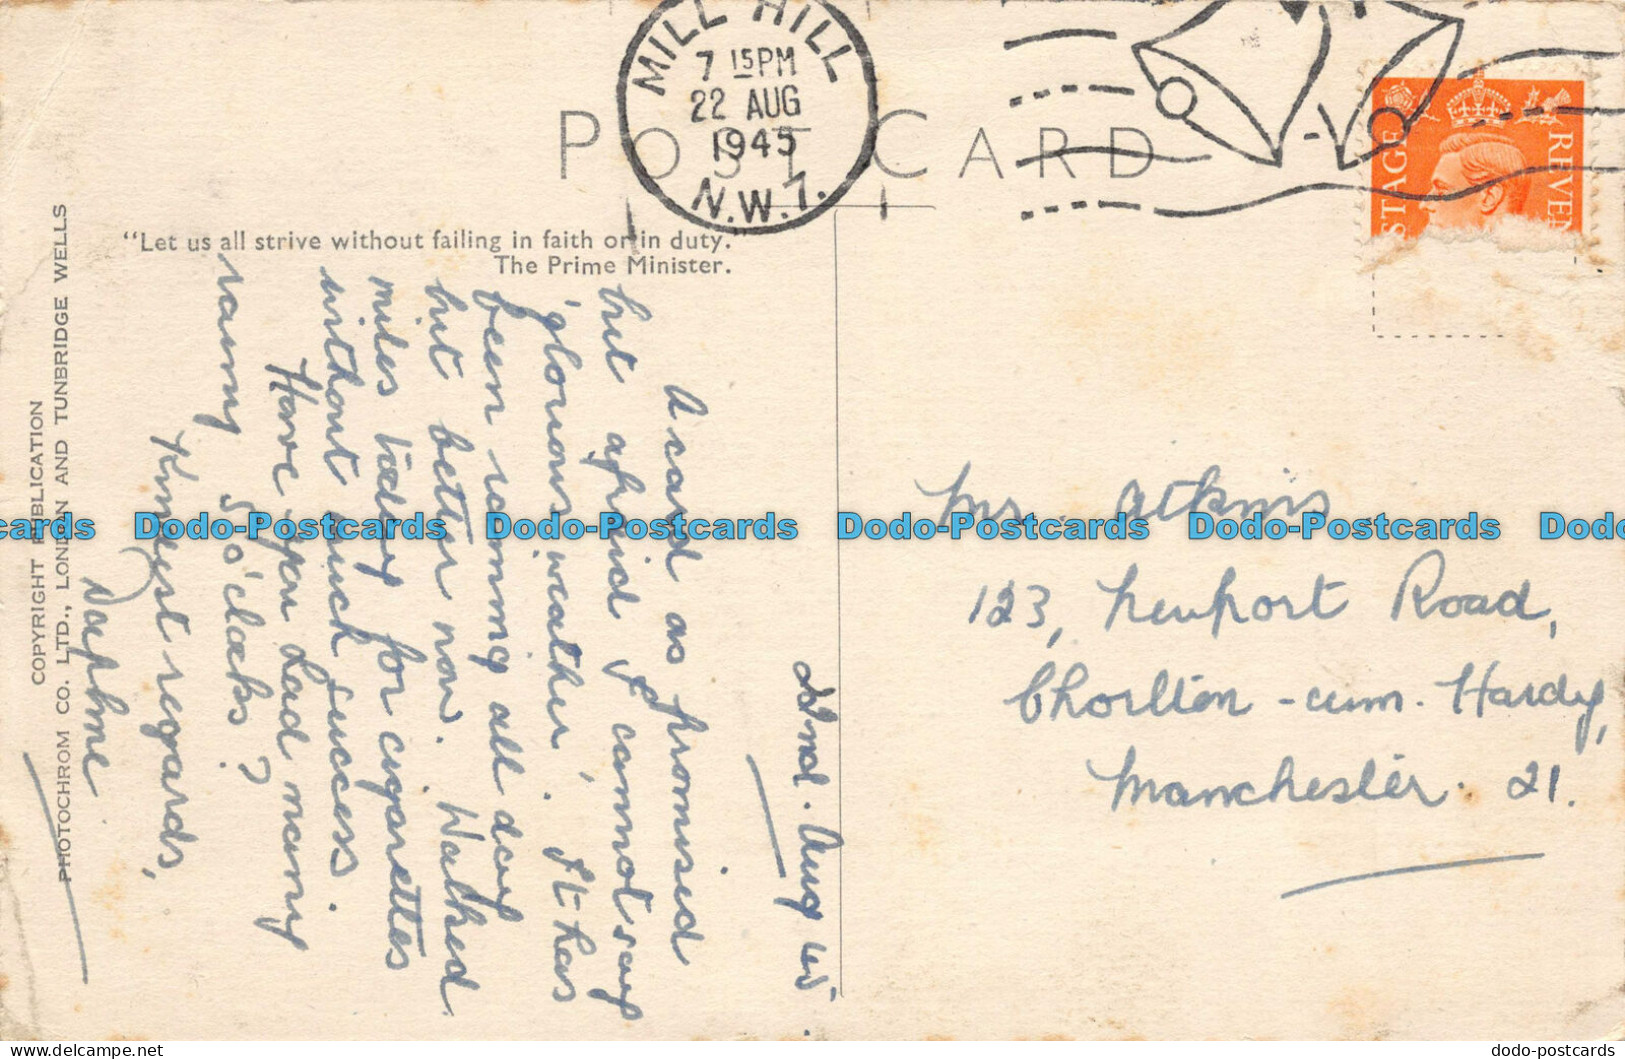 MILL HILL
7 15PM
22 AUG
1945
N.W.7.
POST CARD
POSTAGE REVENUE
"Let us all strive without failing in faith or in duty."
The Prime Minister.
COPYRIGHT PUBLICATION
PHOTOCHROM CO. LTD., LONDON AND TUNBRIDGE WELLS
22nd. Aug 45.
A card as promised
but afraid I cannot say
'glorious weather'. It has
been raining all day
but better now. Walked
miles today for cigarettes
without much success.
Have you had many
rainy 5 o'clocks?
Kindest regards,
Daphne
Mrs. Atkins
123, Newport Road,
Chorlton-cum-Hardy,
Manchester. 21.
cards Dodo-Postcards Dodo-Postcards Dodo-Postcards Dodo-Postcards Dodo
dodo-postcards